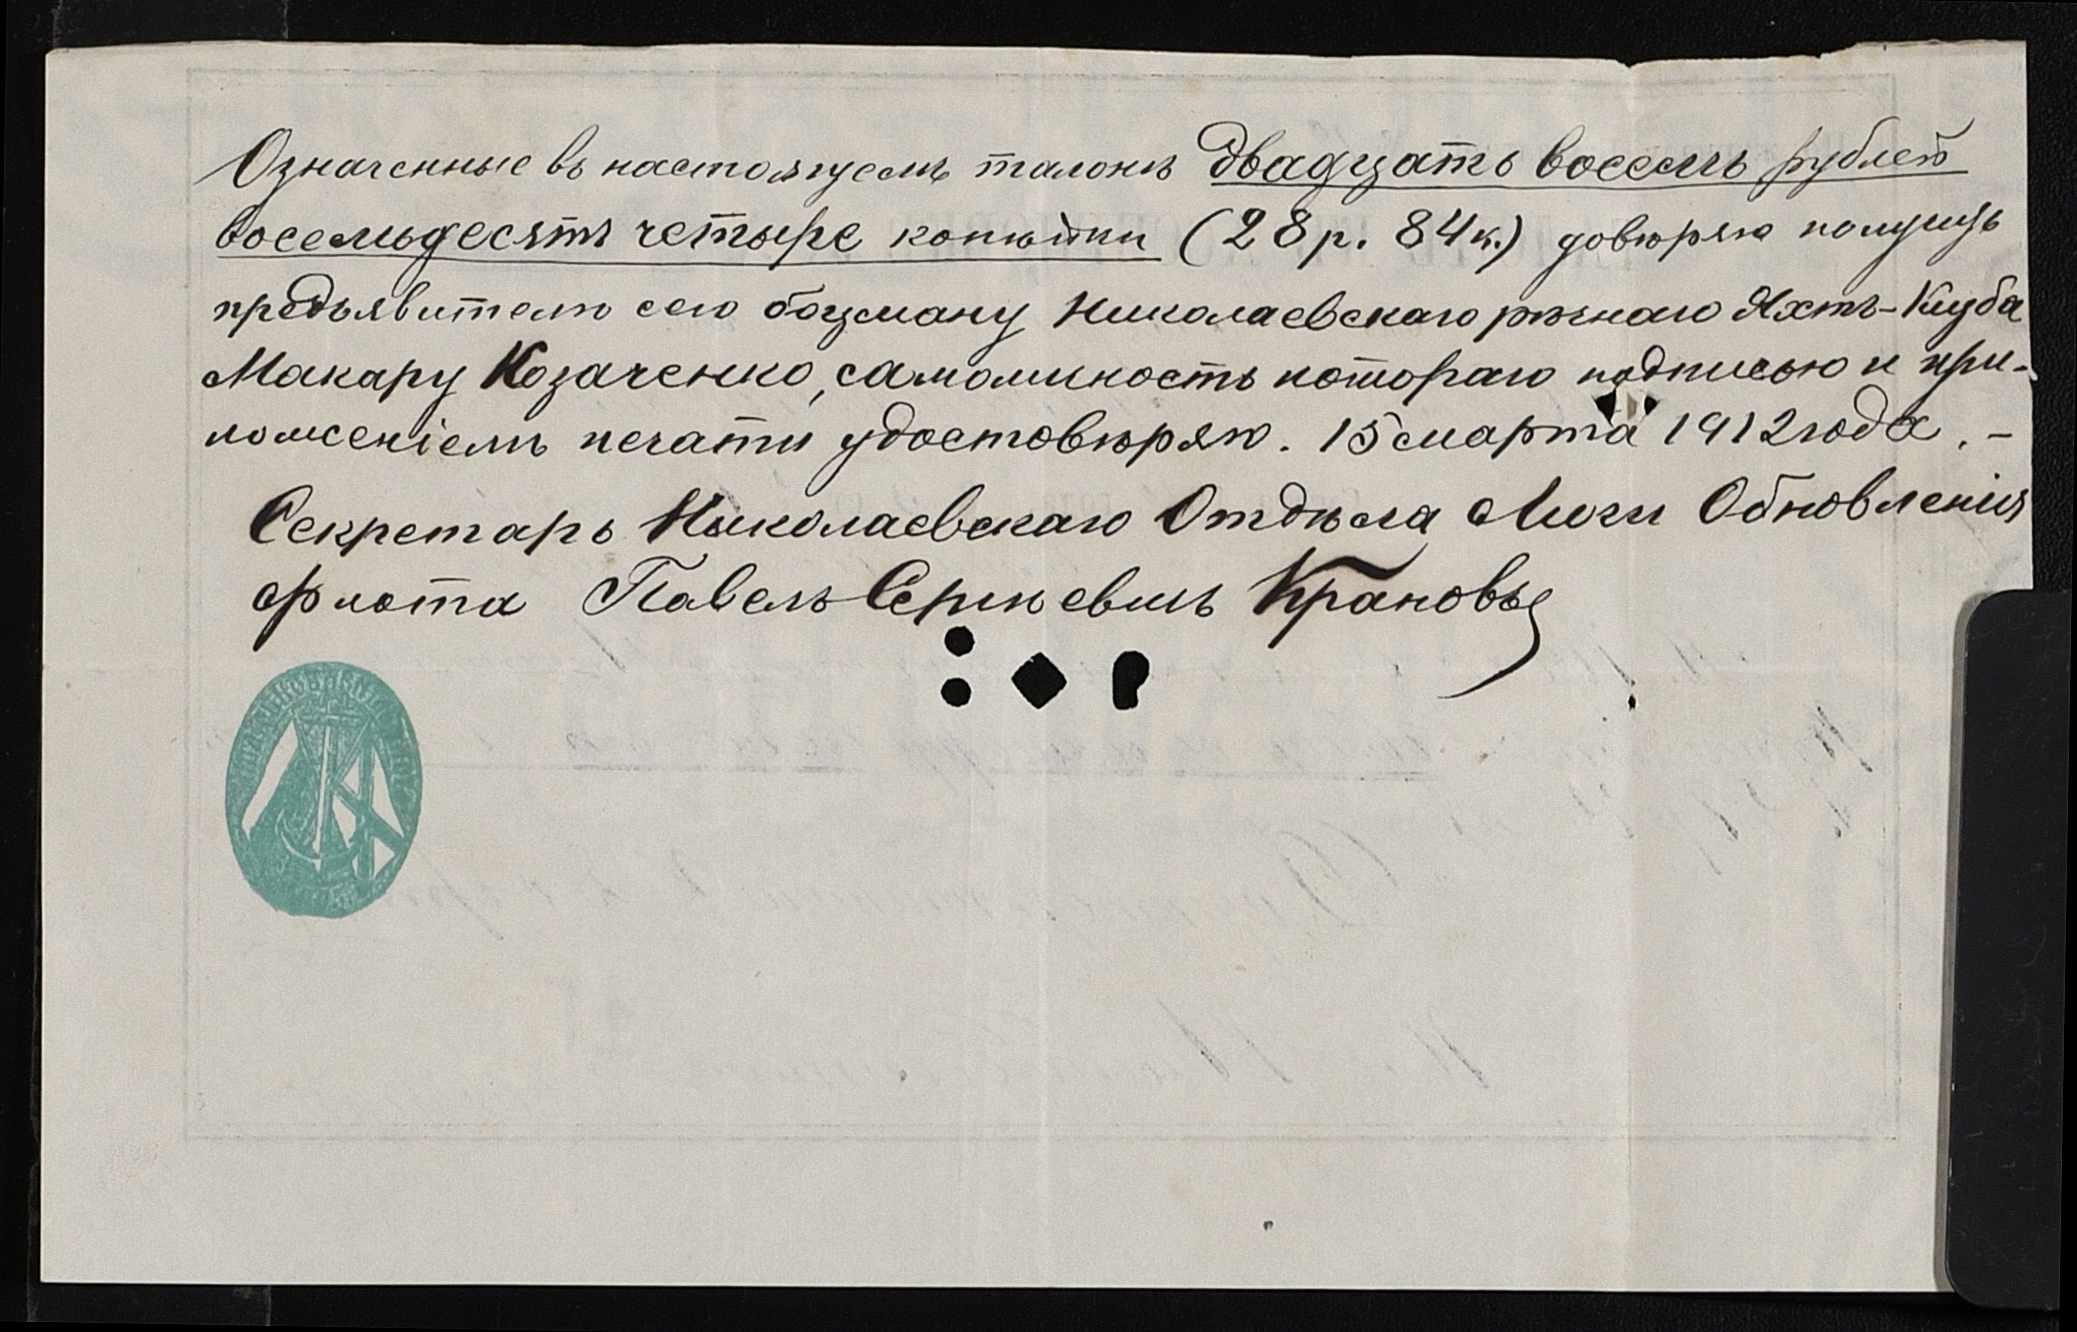 Означенные въ настоящемъ талонѣ двадцать восемь рублей
восемьдесятъ четыре копѣйки (28 р. 84 к.) довѣряю получить
предъявителю сего боцману Николаевскаго рѣчнаго Яхтъ-Клуба
Макару Козаченко, самоличность котораго подписью и при-
ложеніемъ печати удостовѣряю. 15 марта 1912 года. –
Секретарь Николаевскаго Отдѣла Лиги Обновленія
Флота Павелъ Сергѣевичъ Крановъ